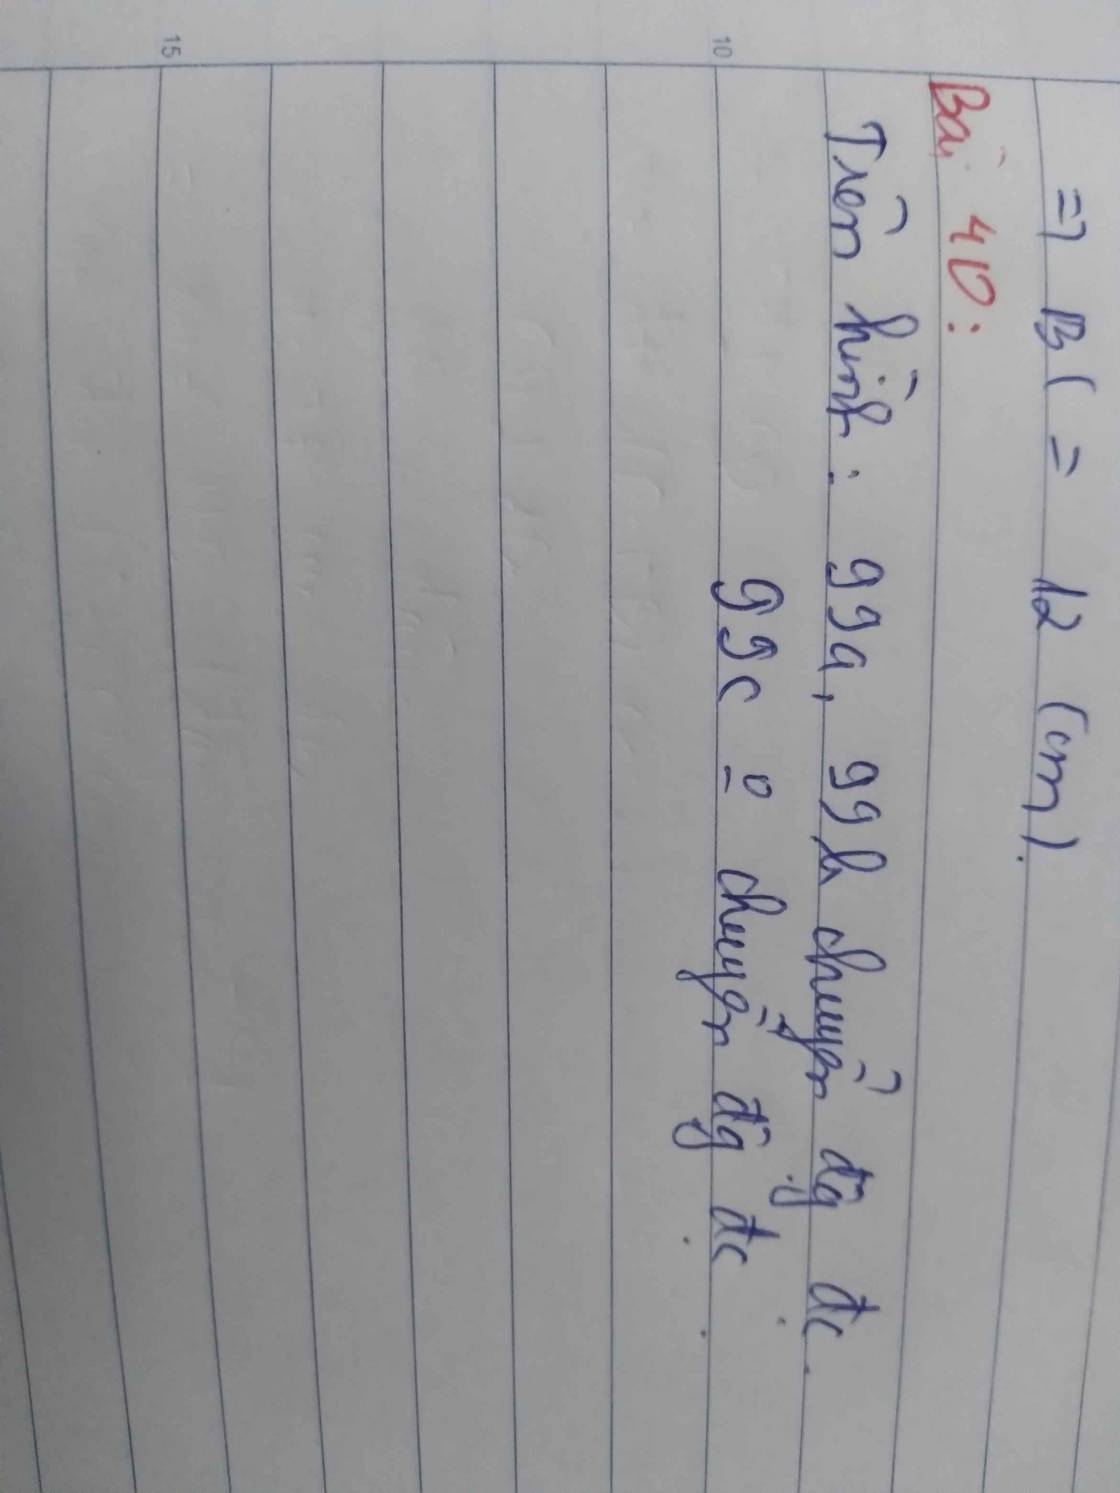 => BC = 12 (cm).
Bài 40:
Trên hình: 99a, 99b chuyển động đc.
99c o chuyển động đc.
10
15